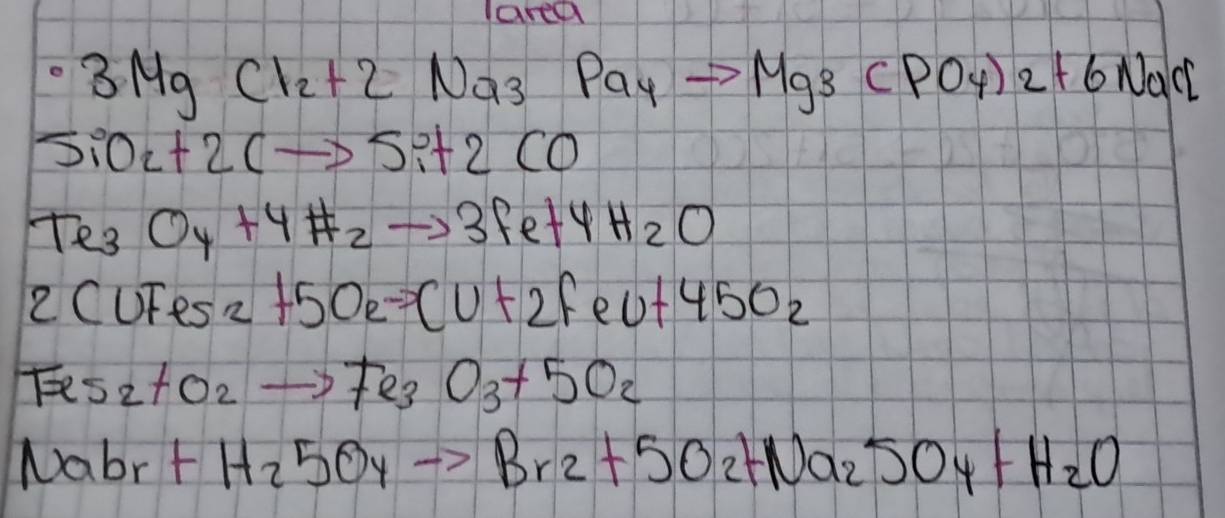 Tarea
• 3Mg Cl2 + 2 Na3 Pa4 → Mg3 (PO4)2 + 6NaCl
SiO2 + 2C → Si + 2 CO
Te3 O4 + 4H2 → 3fe + 4H2O
2CUFeS2 + 5O2 → CU + 2feU + 4SO2
FeS2 + O2 → Fe3 O3 + SO2
Nabr + H2SO4 → Br2 + SO2 + Na2SO4 + H2O